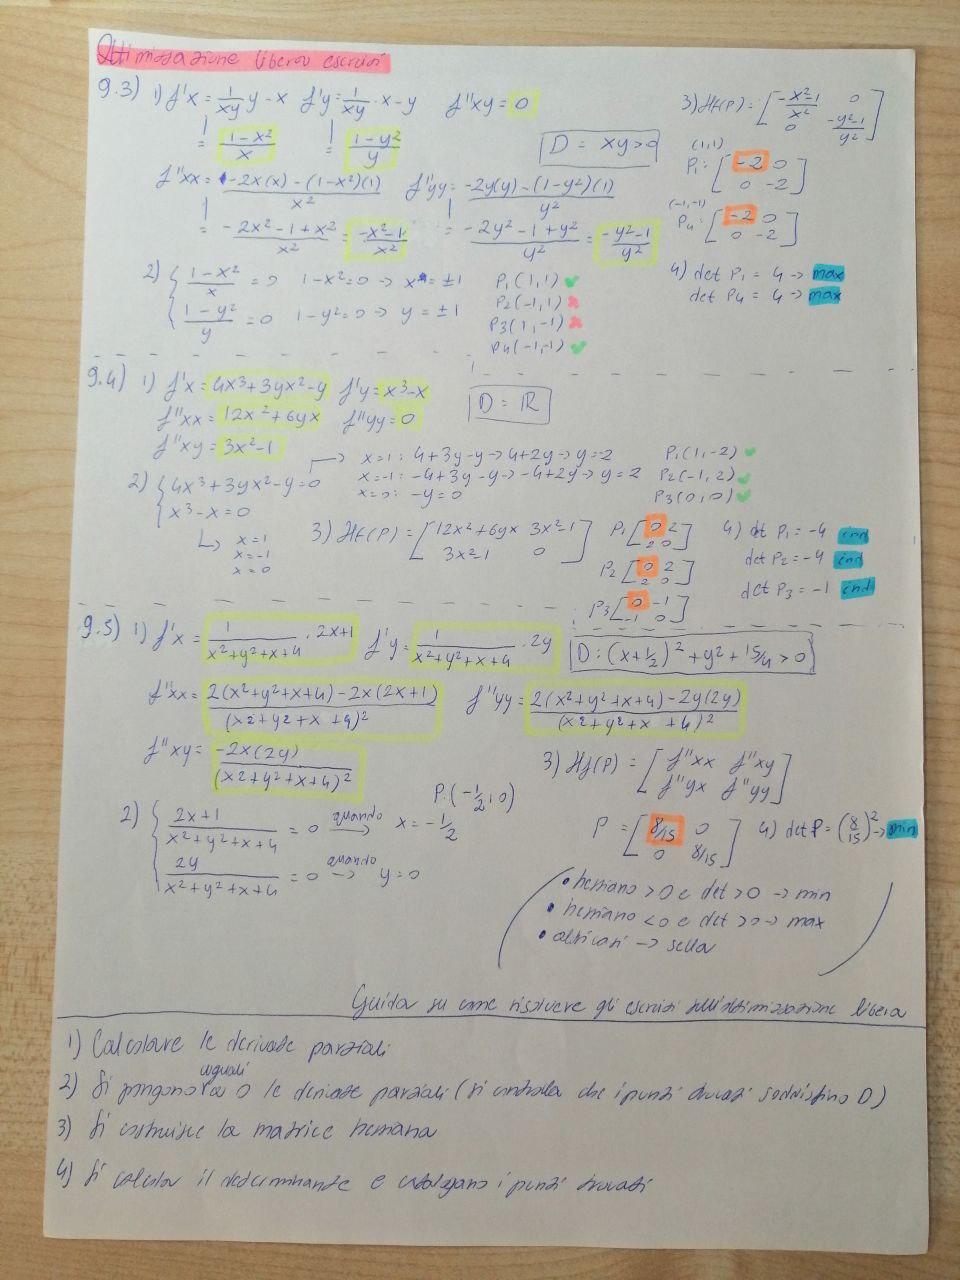 Ottimizzazione libera esercizi
9.3) 1) f'x = 1/xy · y - x   f'y = 1/xy · x - y   f''xy = 0
= (1-x²)/x   = (1-y²)/y   D = xy>0
f''xx = (-2x(x) - (1-x²)(1))/x²   f''yy = (-2y(y) - (1-y²)(1))/y²
= (-2x² - 1 + x²)/x² = (-x²-1)/x²   = (-2y² - 1 + y²)/y² = (-y²-1)/y²
2) { (1-x²)/x = 0   1-x²=0 → x = ±1
(1-y²)/y = 0   1-y²=0 → y = ±1
P1(1,1) ✓
P2(-1,1) ✗
P3(1,-1) ✗
P4(-1,-1) ✓
3) Hf(P) = [ (-x²-1)/x²   0
0   (-y²-1)/y² ]
(1,1)
P1: [ -2 0
0 -2 ]
(-1,-1)
P4: [ -2 0
0 -2 ]
4) det P1 = 4 → max
det P4 = 4 → max
9.4) 1) f'x = 4x³+3yx²-y   f'y = x³-x   D = ℝ
f''xx = 12x²+6yx   f''yy = 0
f''xy = 3x²-1
2) { 4x³+3yx²-y=0
x³-x=0
↳ x=1
x=-1
x=0
→ x=1: 4+3y-y → 4+2y → y=-2   P1(1,-2) ✓
x=-1: -4+3y-y → -4+2y → y=2   P2(-1,2) ✓
x=0: -y=0   P3(0,0) ✓
3) Hf(P) = [ 12x²+6yx   3x²-1
3x²-1   0 ]
P1 [ 0 2
2 0 ]
P2 [ 0 2
2 0 ]
P3 [ 0 -1
-1 0 ]
4) det P1 = -4 ind
det P2 = -4 ind
det P3 = -1 ind
9.5) 1) f'x = 1/(x²+y²+x+4) · 2x+1   f'y = 1/(x²+y²+x+4) · 2y   D: (x+½)² + y² + 15/4 > 0
f''xx = (2(x²+y²+x+4) - 2x(2x+1))/(x²+y²+x+4)²   f''yy = (2(x²+y²+x+4) - 2y(2y))/(x²+y²+x+4)²
f''xy = -2x(2y)/(x²+y²+x+4)²
2) { (2x+1)/(x²+y²+x+4) = 0 quando → x = -½   P: (-½, 0)
2y/(x²+y²+x+4) = 0 quando → y=0
3) Hf(P) = [ f''xx   f''xy
f''yx   f''yy ]
P = [ 8/15   0
0   8/15 ]
4) det P = (8/15)² → min
• hessiano > 0 e det > 0 → min
• hessiano < 0 e det > 0 → max
• altri casi → sella
Guida su come risolvere gli esercizi sull'ottimizzazione libera
1) Calcolare le derivate parziali
2) Si pongono uguali a 0 le derivate parziali (si controlla che i punti trovati soddisfino D)
3) Si costruisce la matrice hessiana
4) Si calcola il determinante e catalogano i punti trovati